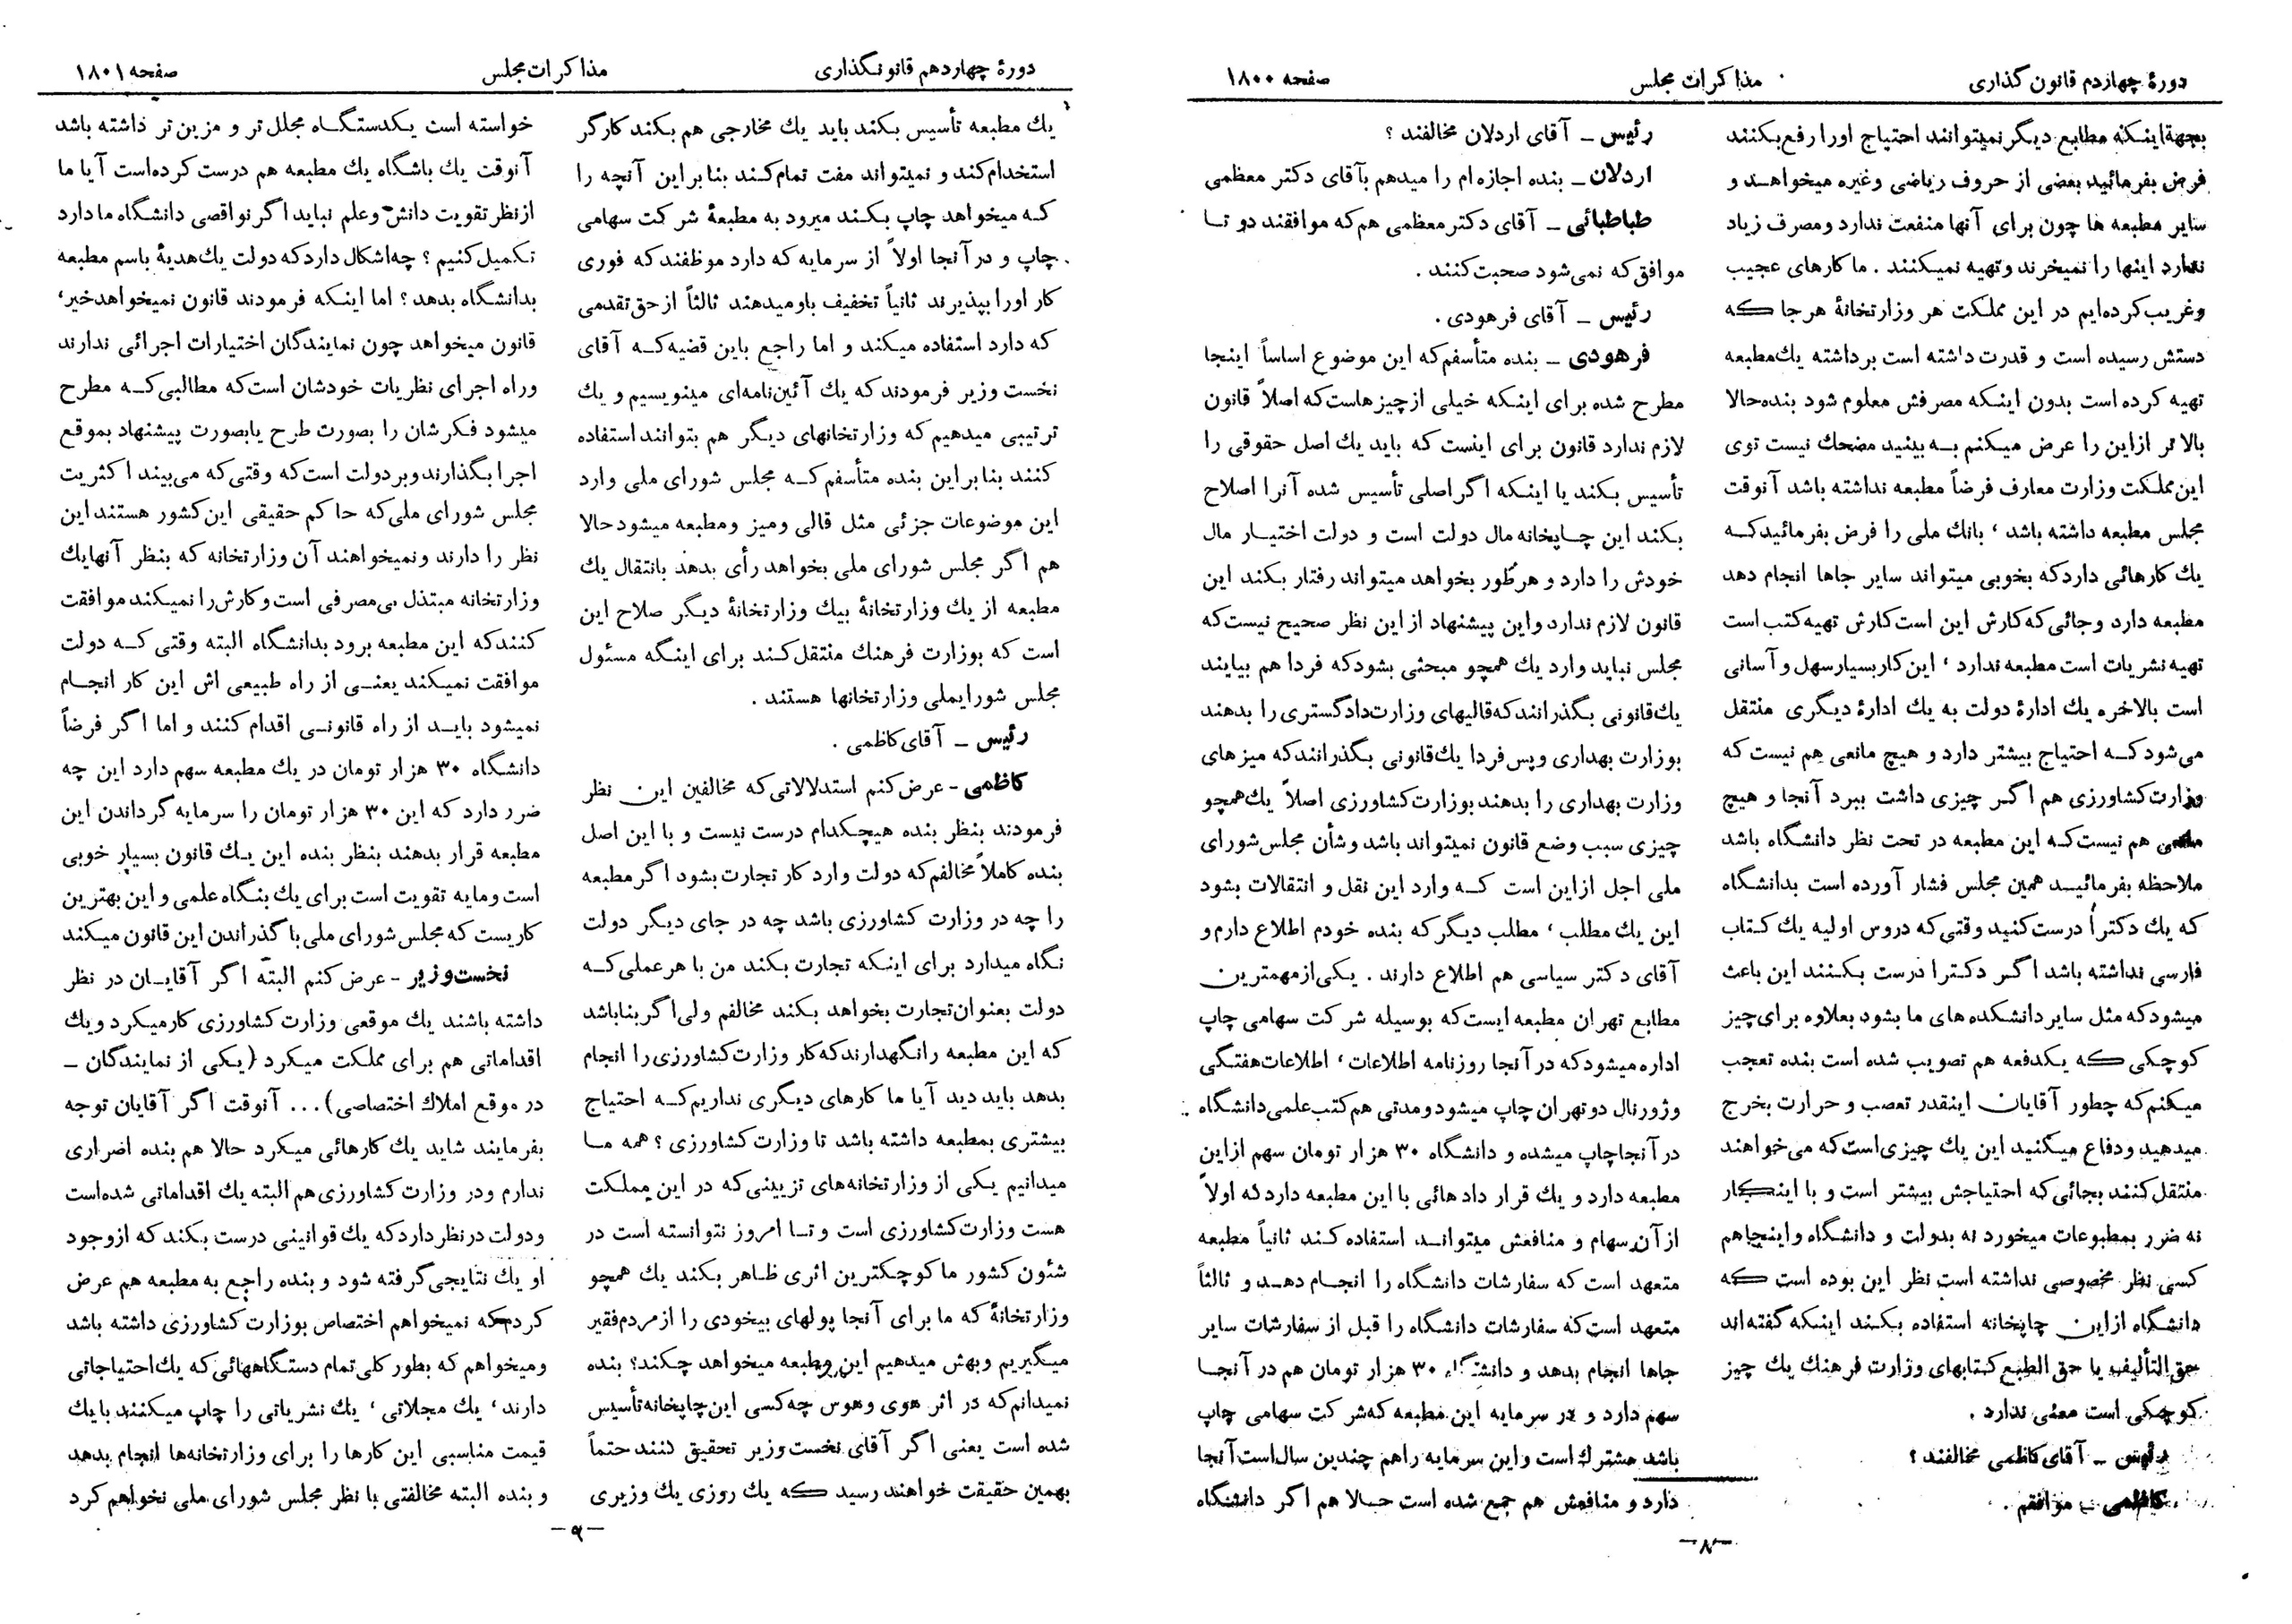 دورهٔ چهاردم قانون گذاری
مذاکرات مجلس
صفحه ۱۸۰۰
بجهةاینکه مطابع دیگر نمیتوانند احتیاج اورا رفع بکنند
فرض بفرمائید بعضی از حروف ریاضی وغیره میخواهند و
سایر مطبعه ها چون برای آنها منفعت ندارد ومصرف زیاد
ندارد اینها را نمیخرند وتهیه نمیکنند . ما کارهای عجیب
وغریب کرده‌ایم در این مملکت هر وزارتخانهٔ هرجا که
دستش رسیده است و قدرت داشته است برداشته یك مطبعه
تهیه کرده است بدون اینکه مصرفش معلوم شود بنده حالا
بالا تر ازاین را عرض میکنم به بینید مضحك نیست توی
این مملکت وزارت معارف فرضاً مطبعه نداشته باشد آنوقت
مجلس مطبعه داشته باشد ، بانك ملی را فرض بفرمائید که
یك کارهائی دارد که بخوبی میتواند سایر جاها انجام دهد
مطبعه دارد وجائی که کارش این است کارش تهیه کتب است
تهیه نشریات است مطبعه ندارد ، این کار بسیار سهل و آسانی
است بالاخره یك ادارهٔ دولت به یك ادارهٔ دیگری منتقل
می‌شود که احتیاج بیشتر دارد و هیچ مانعی هم نیست که
وزارت کشاورزی هم اگر چیزی داشت ببرد آنجا و هیچ
هم نیست که این مطبعه در تحت نظر دانشگاه باشد
ملاحظه بفرمائید همین مجلس فشار آورده است بدانشگاه
که یك دکترا درست کنید وقتی که دروس اولیه یك کتاب
فارسی نداشته باشد اگر دکترا درست بکنند این باعث
میشود که مثل سایر دانشکده های ما بشود بعلاوه برای چیز
کوچکی که یکدفعه هم تصویب شده است بنده تعجب
میکنم که چطور آقایان اینقدر تعصب و حرارت بخرج
میدهید ودفاع میکنید این یك چیزی است که می‌خواهند
منتقل کنند بجائی که احتیاجش بیشتر است و با اینکار
نه ضرر بمطبوعات میخورد نه بدولت و دانشگاه و اینجا هم
کسی نظر مخصوصی نداشته است نظر این بوده است که
دانشگاه ازاین چاپخانه استفاده بکند اینکه گفته‌اند
حق التألیف یا حق الطبع کتابهای وزارت فرهنك یك چیز
کوچکی است معنی ندارد .
رئیس ـ آقای کاظمی مخالفند ؟
کاظمی ـ موافقم .
رئیس ـ آقای اردلان مخالفند ؟
اردلان ـ بنده اجازه ام را میدهم بآقای دکتر معظمی
طباطبائی ـ آقای دکتر معظمی هم که موافقند دو تا
موافق که نمی‌شود صحبت کنند .
رئیس ـ آقای فرهودی .
فرهودی ـ بنده متأسفم که این موضوع اساساً اینجا
مطرح شده برای اینکه خیلی از چیزهاست که اصلاً قانون
لازم ندارد قانون برای اینست که باید یك اصل حقوقی را
تأسیس بکند یا اینکه اگر اصلی تأسیس شده آنرا اصلاح
بکند این چاپخانه مال دولت است و دولت اختیار مال
خودش را دارد و هرطور بخواهد میتواند رفتار بکند این
قانون لازم ندارد واین پیشنهاد از این نظر صحیح نیست که
مجلس نباید وارد یك همچو مبحثی بشود که فردا هم بیایند
یك قانونی بگذرانند که قالیهای وزارت دادگستری را بدهند
بوزارت بهداری و پس فردا یك قانونی بگذرانند که میز های
وزارت بهداری را بدهند بوزارت کشاورزی اصلاً یك همچو
چیزی سبب وضع قانون نمیتواند باشد وشأن مجلس شورای
ملی اجل ازاین است که وارد این نقل و انتقالات بشود
این یك مطلب ، مطلب دیگر که بنده خودم اطلاع دارم و
آقای دکتر سیاسی هم اطلاع دارند . یکی از مهمترین
مطابع تهران مطبعه ایست که بوسیله شرکت سهامی چاپ
اداره میشود که در آنجا روزنامه اطلاعات ، اطلاعات هفتگی
وژورنال دوتهران چاپ میشود ومدتی هم کتب علمی دانشگاه
در آنجا چاپ میشده و دانشگاه ۳۰ هزار تومان سهم ازاین
مطبعه دارد و یك قرار داد هائی با این مطبعه دارد که اولاً
از آن سهام و منافعش میتواند استفاده کند ثانیاً مطبعه
متعهد است که سفارشات دانشگاه را انجام دهد و ثالثاً
متعهد است که سفارشات دانشگاه را قبل از سفارشات سایر
جاها انجام بدهد و دانشگاه ۳۰ هزار تومان هم در آنجا
سهم دارد و در سرمایه این مطبعه که شرکت سهامی چاپ
باشد مشترك است و این سرمایه راهم چندین سال است آنجا
دارد و منافعش هم جمع شده است حالا هم اگر دانشگاه
ـ۸ـ
دورهٔ چهاردهم قانونگذاری
مذاکرات مجلس
صفحه ۱۸۰۱
یك مطبعه تأسیس بکند باید یك مخارجی هم بکند کارگر
استخدام کند و نمیتواند مفت تمام کند بنا براین آنچه را
که میخواهد چاپ بکند میرود به مطبعهٔ شرکت سهامی
چاپ و در آنجا اولاً از سرمایه که دارد موظفند که فوری
کار اورا بپذیرند ثانیاً تخفیف باو میدهند ثالثاً از حق تقدمی
که دارد استفاده میکند و اما راجع باین قضیه که آقای
نخست وزیر فرمودند که یك آئین‌نامه‌ای مینویسیم و یك
ترتیبی میدهیم که وزارتخانهای دیگر هم بتوانند استفاده
کنند بنابراین بنده متأسفم که مجلس شورای ملی وارد
این موضوعات جزئی مثل قالی ومیز ومطبعه میشود حالا
هم اگر مجلس شورای ملی بخواهد رأی بدهد بانتقال یك
مطبعه از یك وزارتخانهٔ بیك وزارتخانهٔ دیگر صلاح این
است که بوزارت فرهنك منتقل کند برای اینکه مسئول
مجلس شورایملی وزارتخانها هستند .
رئیس ـ آقای کاظمی .
کاظمی - عرض کنم استدلالاتی که مخالفین این نظر
فرمودند بنظر بنده هیچکدام درست نیست و با این اصل
بنده کاملاً مخالفم که دولت وارد کار تجارت بشود اگر مطبعه
را چه در وزارت کشاورزی باشد چه در جای دیگر دولت
نگاه میدارد برای اینکه تجارت بکند من با هر عملی که
دولت بعنوان تجارت بخواهد بکند مخالفم ولی اگر بناباشد
که این مطبعه رانگهدارند که کار وزارت کشاورزی را انجام
بدهد باید دید آیا ما کارهای دیگری نداریم که احتیاج
بیشتری بمطبعه داشته باشد تا وزارت کشاورزی ؟ همه ما
میدانیم یکی از وزارتخانه‌های تزیینی که در این مملکت
هست وزارت کشاورزی است و تا امروز نتوانسته است در
شئون کشور ما کوچکترین اثری ظاهر بکند یك همچو
وزارتخانهٔ که ما برای آنجا پولهای بیخودی را از مردم فقیر
میگیریم وبهش میدهیم این مطبعه میخواهد چکند؟ بنده
نمیدانم که در اثر هوی وهوس چه کسی این چاپخانه تأسیس
شده است یعنی اگر آقای نخست وزیر تحقیق کنند حتماً
بهمین حقیقت خواهند رسید که یك روزی یك وزیری
خواسته است یکدستگاه مجلل تر و مزین تر داشته باشد
آنوقت یك باشگاه یك مطبعه هم درست کرده‌است آیا ما
از نظر تقویت دانش وعلم نباید اگر نواقصی دانشگاه ما دارد
تکمیل کنیم ؟ چه اشکال دارد که دولت یك هدیهٔ باسم مطبعه
بدانشگاه بدهد ؟ اما اینکه فرمودند قانون نمیخواهد خیر،
قانون میخواهد چون نمایندگان اختیارات اجرائی ندارند
وراه اجرای نظریات خودشان است که مطالبی که مطرح
میشود فکرشان را بصورت طرح یابصورت پیشنهاد بموقع
اجرا بگذارند وبر دولت است که وقتی که می‌بیند اکثریت
مجلس شورای ملی که حاکم حقیقی این کشور هستند این
نظر را دارند ونمیخواهند آن وزارتخانه که بنظر آنها یك
وزارتخانه مبتذل بی‌مصرفی است و کارش را نمیکند موافقت
کنند که این مطبعه برود بدانشگاه البته وقتی که دولت
موافقت نمیکند یعنی از راه طبیعی اش این کار انجام
نمیشود باید از راه قانونی اقدام کنند و اما اگر فرضاً
دانشگاه ۳۰ هزار تومان در یك مطبعه سهم دارد این چه
ضرر دارد که این ۳۰ هزار تومان را سرمایه گرداندن این
مطبعه قرار بدهند بنظر بنده این یك قانون بسیار خوبی
است و مایه تقویت است برای یك بنگاه علمی و این بهترین
کاریست که مجلس شورای ملی با گذراندن این قانون میکند
نخست وزیر - عرض کنم البته اگر آقایان در نظر
داشته باشند یك موقعی وزارت کشاورزی کار میکرد و یك
اقداماتی هم برای مملکت میکرد (یکی از نمایندگان ـ
در موقع املاك اختصاصی)... آنوقت اگر آقایان توجه
بفرمایند شاید یك کارهائی میکرد حالا هم بنده اضراری
ندارم ودر وزارت کشاورزی هم البته یك اقداماتی شده است
ودولت در نظر دارد که یك قوانینی درست بکند که از وجود
او یك نتایجی گرفته شود و بنده راجع به مطبعه هم عرض
کردم که نمیخواهم اختصاص بوزارت کشاورزی داشته باشد
ومیخواهم که بطور کلی تمام دستگاههائی که یك احتیاجاتی
دارند ، یك مجلاتی ، یك نشریاتی را چاپ میکنند با یك
قیمت مناسبی این کارها را برای وزارتخانه‌ها انجام بدهد
و بنده البته مخالفتی با نظر مجلس شورای ملی نخواهم کرد
ـ۹ـ